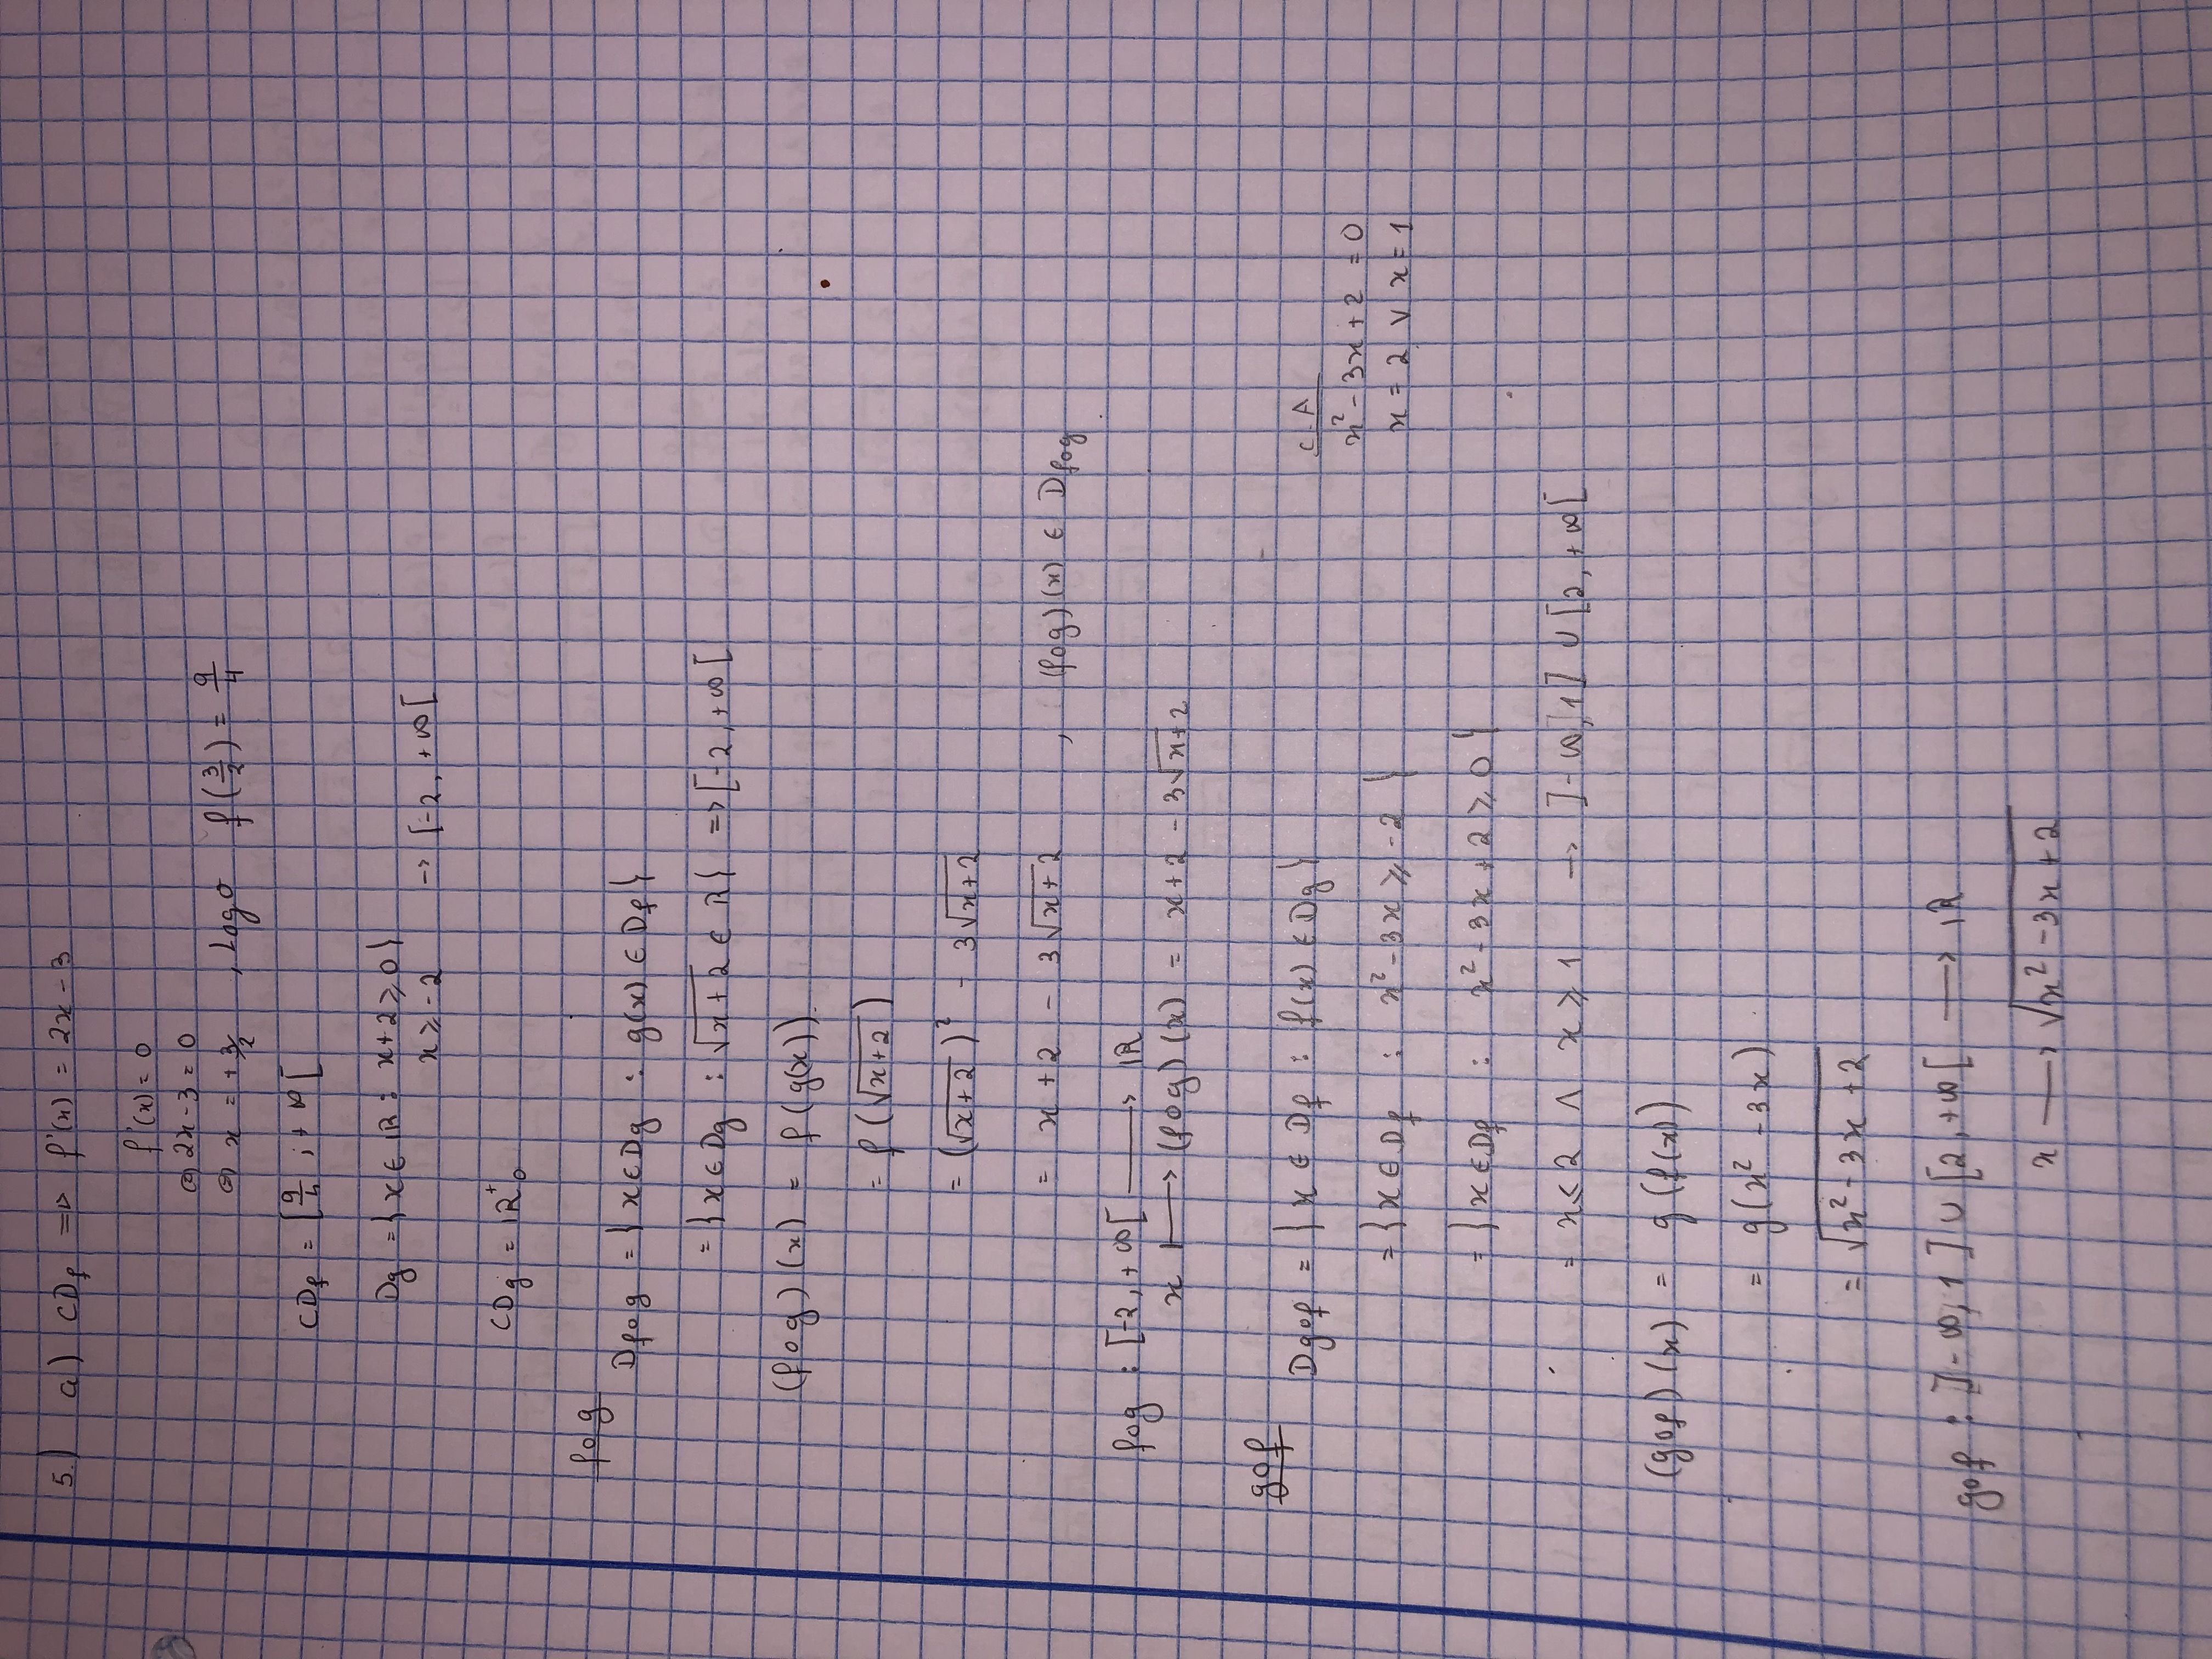 5.) a) CDf => f'(x) = 2x - 3
f'(x) = 0
(=) 2x - 3 = 0
(=) x = + 3/2 , Logo f(3/2) = 9/4
CDf = [9/4 ; + ∞[
Dg = {x ∈ IR : x + 2 ≥ 0}
x ≥ -2 -> [-2, +∞[
CDg = IR⁺₀
fog
Dfog = {x ∈ Dg : g(x) ∈ Df}
= {x ∈ Dg : √(x+2) ∈ R} => [-2, +∞[
(fog)(x) = f(g(x)).
= f(√(x+2))
= (√(x+2))² - 3√(x+2)
= x + 2 - 3√(x+2) , (fog)(x) ∈ Dfog
fog : [-2, +∞[ ⟶ IR
x ⟼ (fog)(x) = x+2 - 3√(x+2)
gof
Dgof = {x ∈ Df : f(x) ∈ Dg}
= {x ∈ Df : x² - 3x ≥ -2}
= {x ∈ Df : x² - 3x + 2 ≥ 0}
C.A
x² - 3x + 2 = 0
x = 2 ∨ x = 1
= x ≤ 2 ∧ x ≥ 1 -> ]-∞, 1] ∪ [2, +∞[
(gof)(x) = g(f(x))
= g(x² - 3x)
= √(x² - 3x + 2)
gof : ]-∞, 1] ∪ [2, +∞[ ⟶ IR
x ⟶ √(x² - 3x + 2)